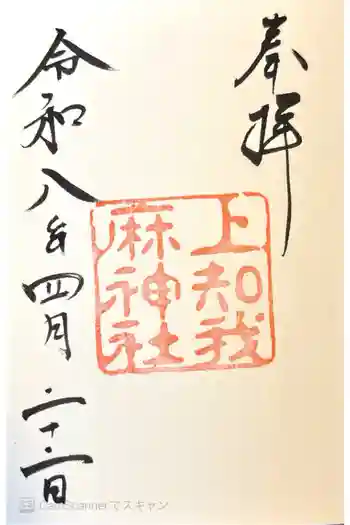 奉拝
上知我
麻神社
令和八年四月二十二日
CamScannerでスキャン